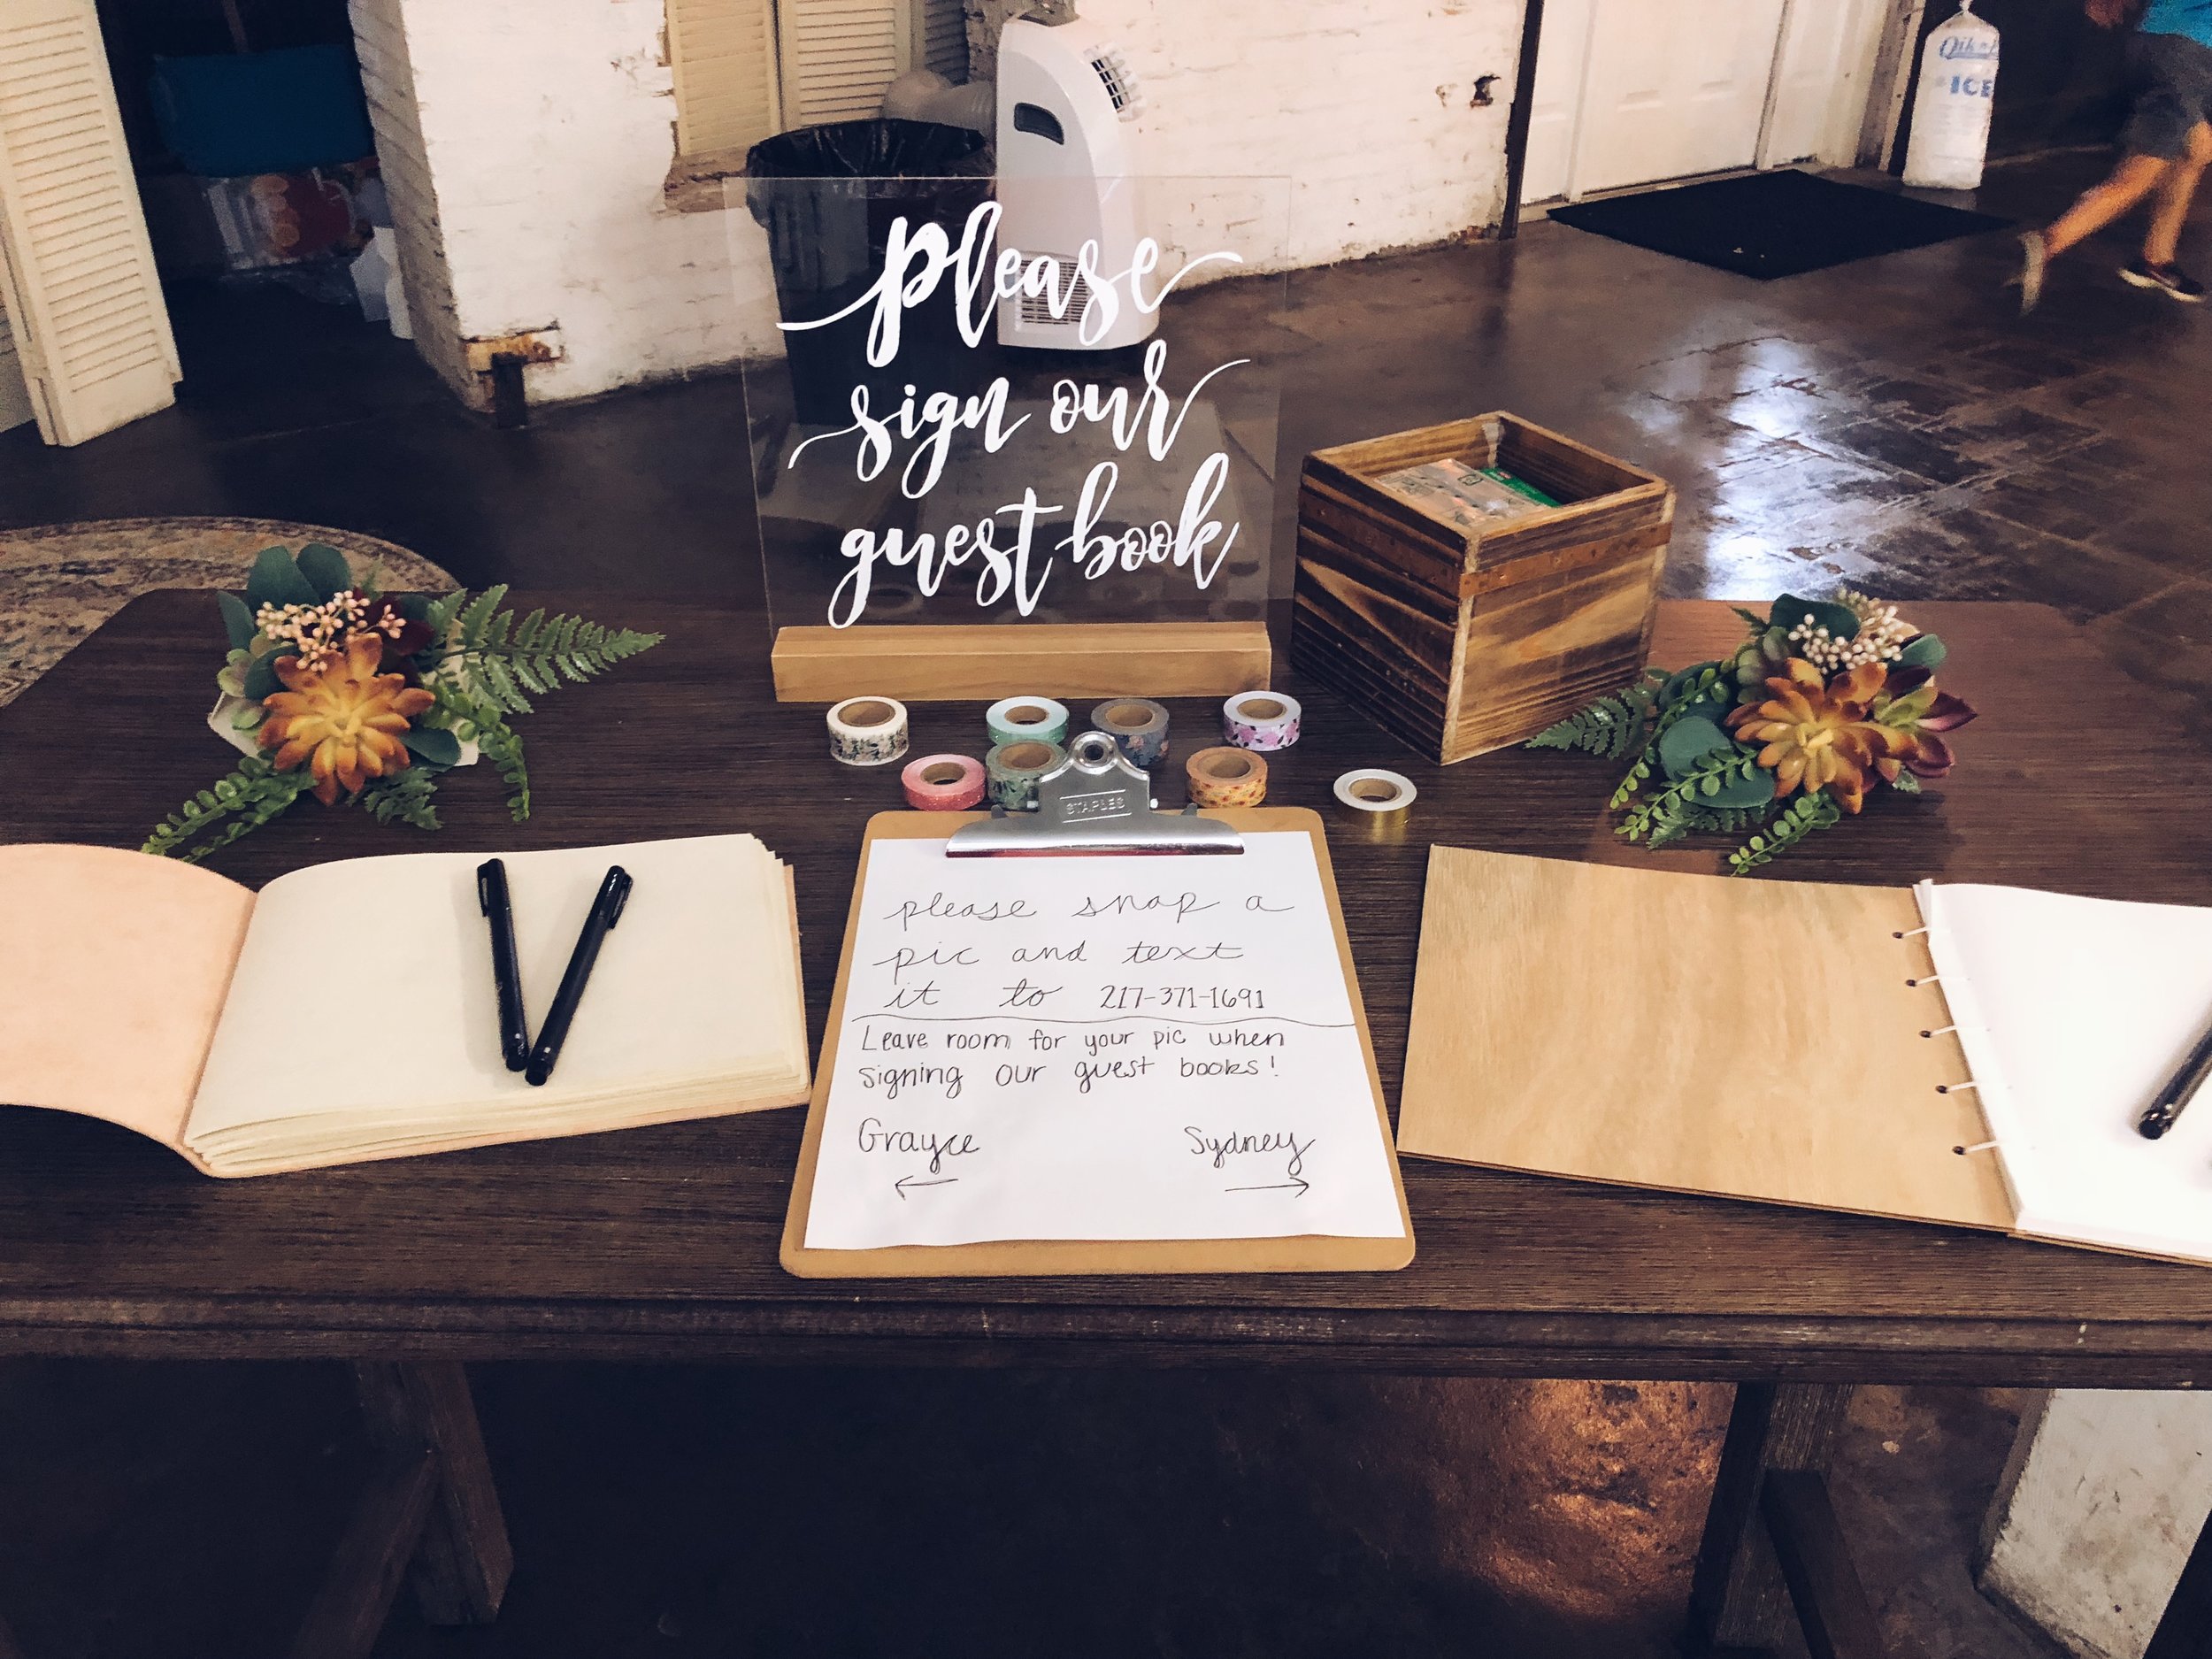 please
sign our
guest book
STAPLES
please snap a
pic and text
it to 217-371-1691
Leave room for your pic when
signing our guest books!
Grayce
Sydney
ICE